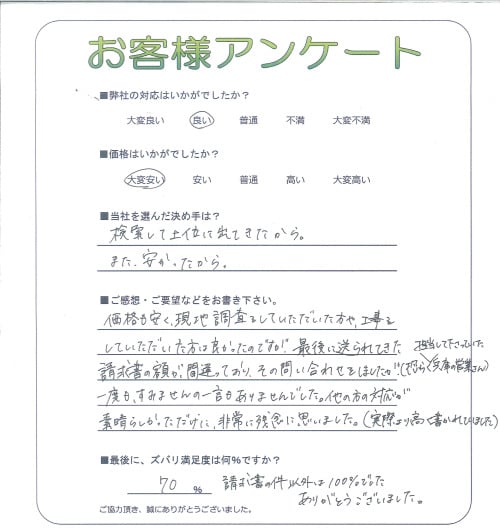 お客様アンケート
■弊社の対応はいかがでしたか?
大変良い 良い 普通 不満 大変不満
■価格はいかがでしたか?
大変安い 安い 普通 高い 大変高い
■当社を選んだ決め手は?
検索して上位に出てきたから。
また、安かったから。
■ご感想・ご要望などをお書き下さい。
価格も安く、現地調査をしていただいた方や、工事を
していただいた方は良かったのですが、最後に送られてきた
請求書の額が間違っており、その問い合わせをしましたが(恐らく兵庫の営業さん)
担当して下さっていた
一度も、すみませんの一言もありませんでした。他の方の対応が
素晴らしかっただけに、非常に残念に思いました。(実際より高く書かれていました)
■最後に、ズバリ満足度は何%ですか?
70 % 請求書の件以外は100%でした
ありがとうございました。
ご協力頂き、誠にありがとうございました。